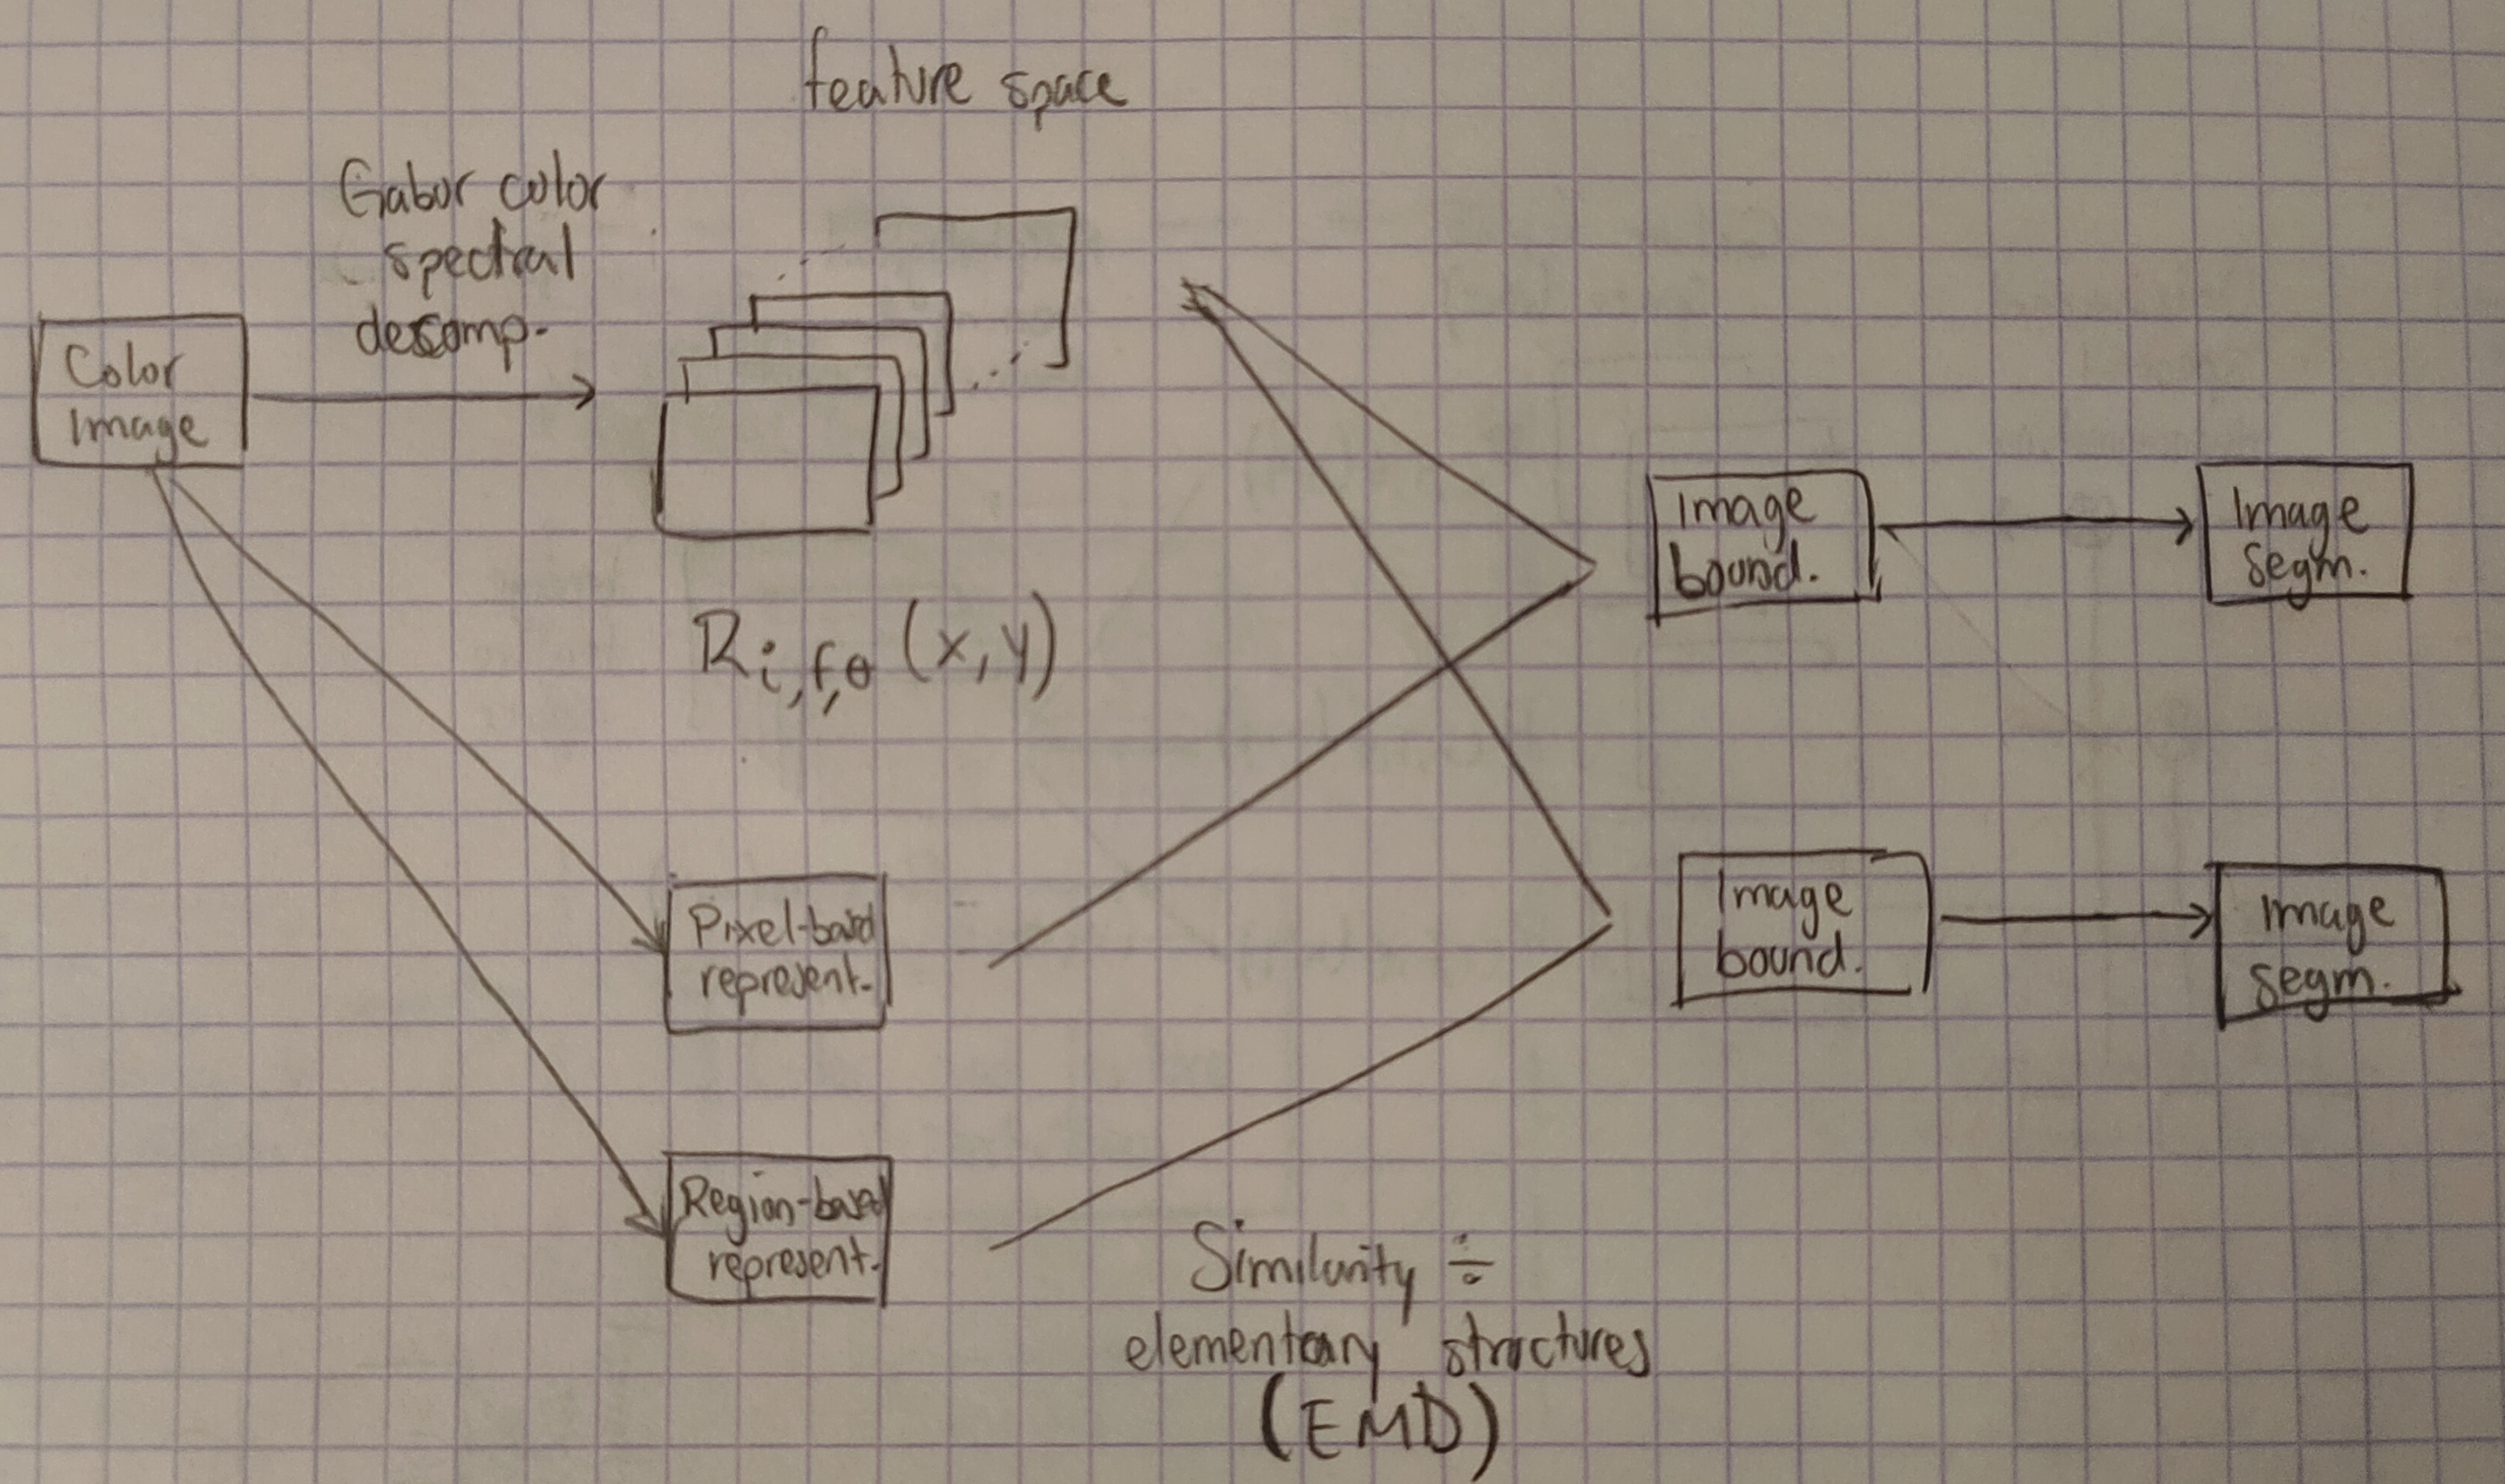 feature space
Gabor color
spectral
decomp.
Color
Image
R i,f,θ (x,y)
Image
bound.
Image
segm.
Pixel-based
represent.
Image
bound.
Image
segm.
Region-based
represent.
Similarity ÷
elementary structures
(EMD)